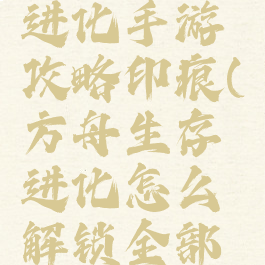 进化手游
攻略印痕(
方舟生存
进化怎么
解锁全部